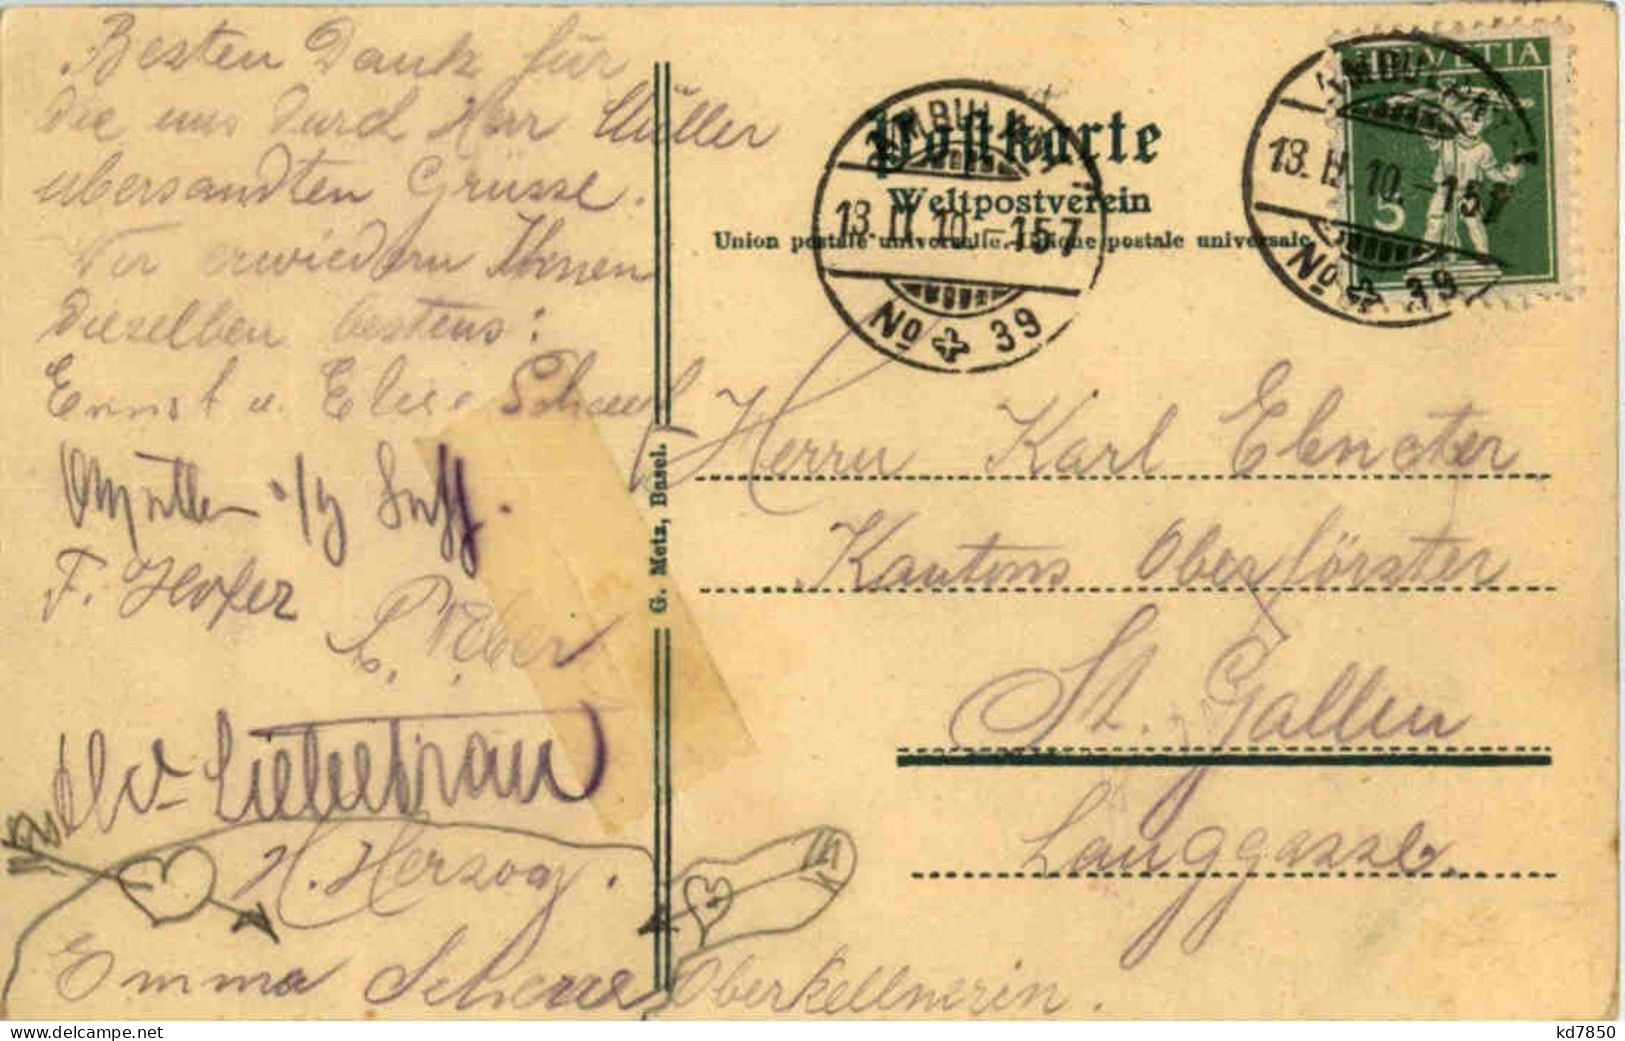 Besten Dank für
die uns durch Herr Müller
übersandten Grüsse.
Wir erwiedern Ihnen
dieselben bestens:
Ernst u. Elise
F. Hofer
C. Weber
H. Herzog.
Emma Scherrer Oberkellnerin.
G. Metz, Basel.
Postkarte
Weltpostverein
Union postale universelle. Unione postale universale.
AMBULANT
13. II. 10. - 157
No 39
HELVETIA
5
AMBULANT
13. II. 10. - 157
No 39
Herrn Karl
Kantons Oberförster
St. Gallen
Langgasse.
kd7850